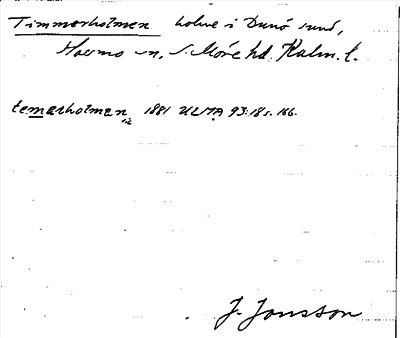 Timmerholmen holme i Dunö sund,
Hossmo sn, S. Möre hd. Kalm. l.
temərholmen 1881 ULMA 93:18 s. 166.
J. Jonsson